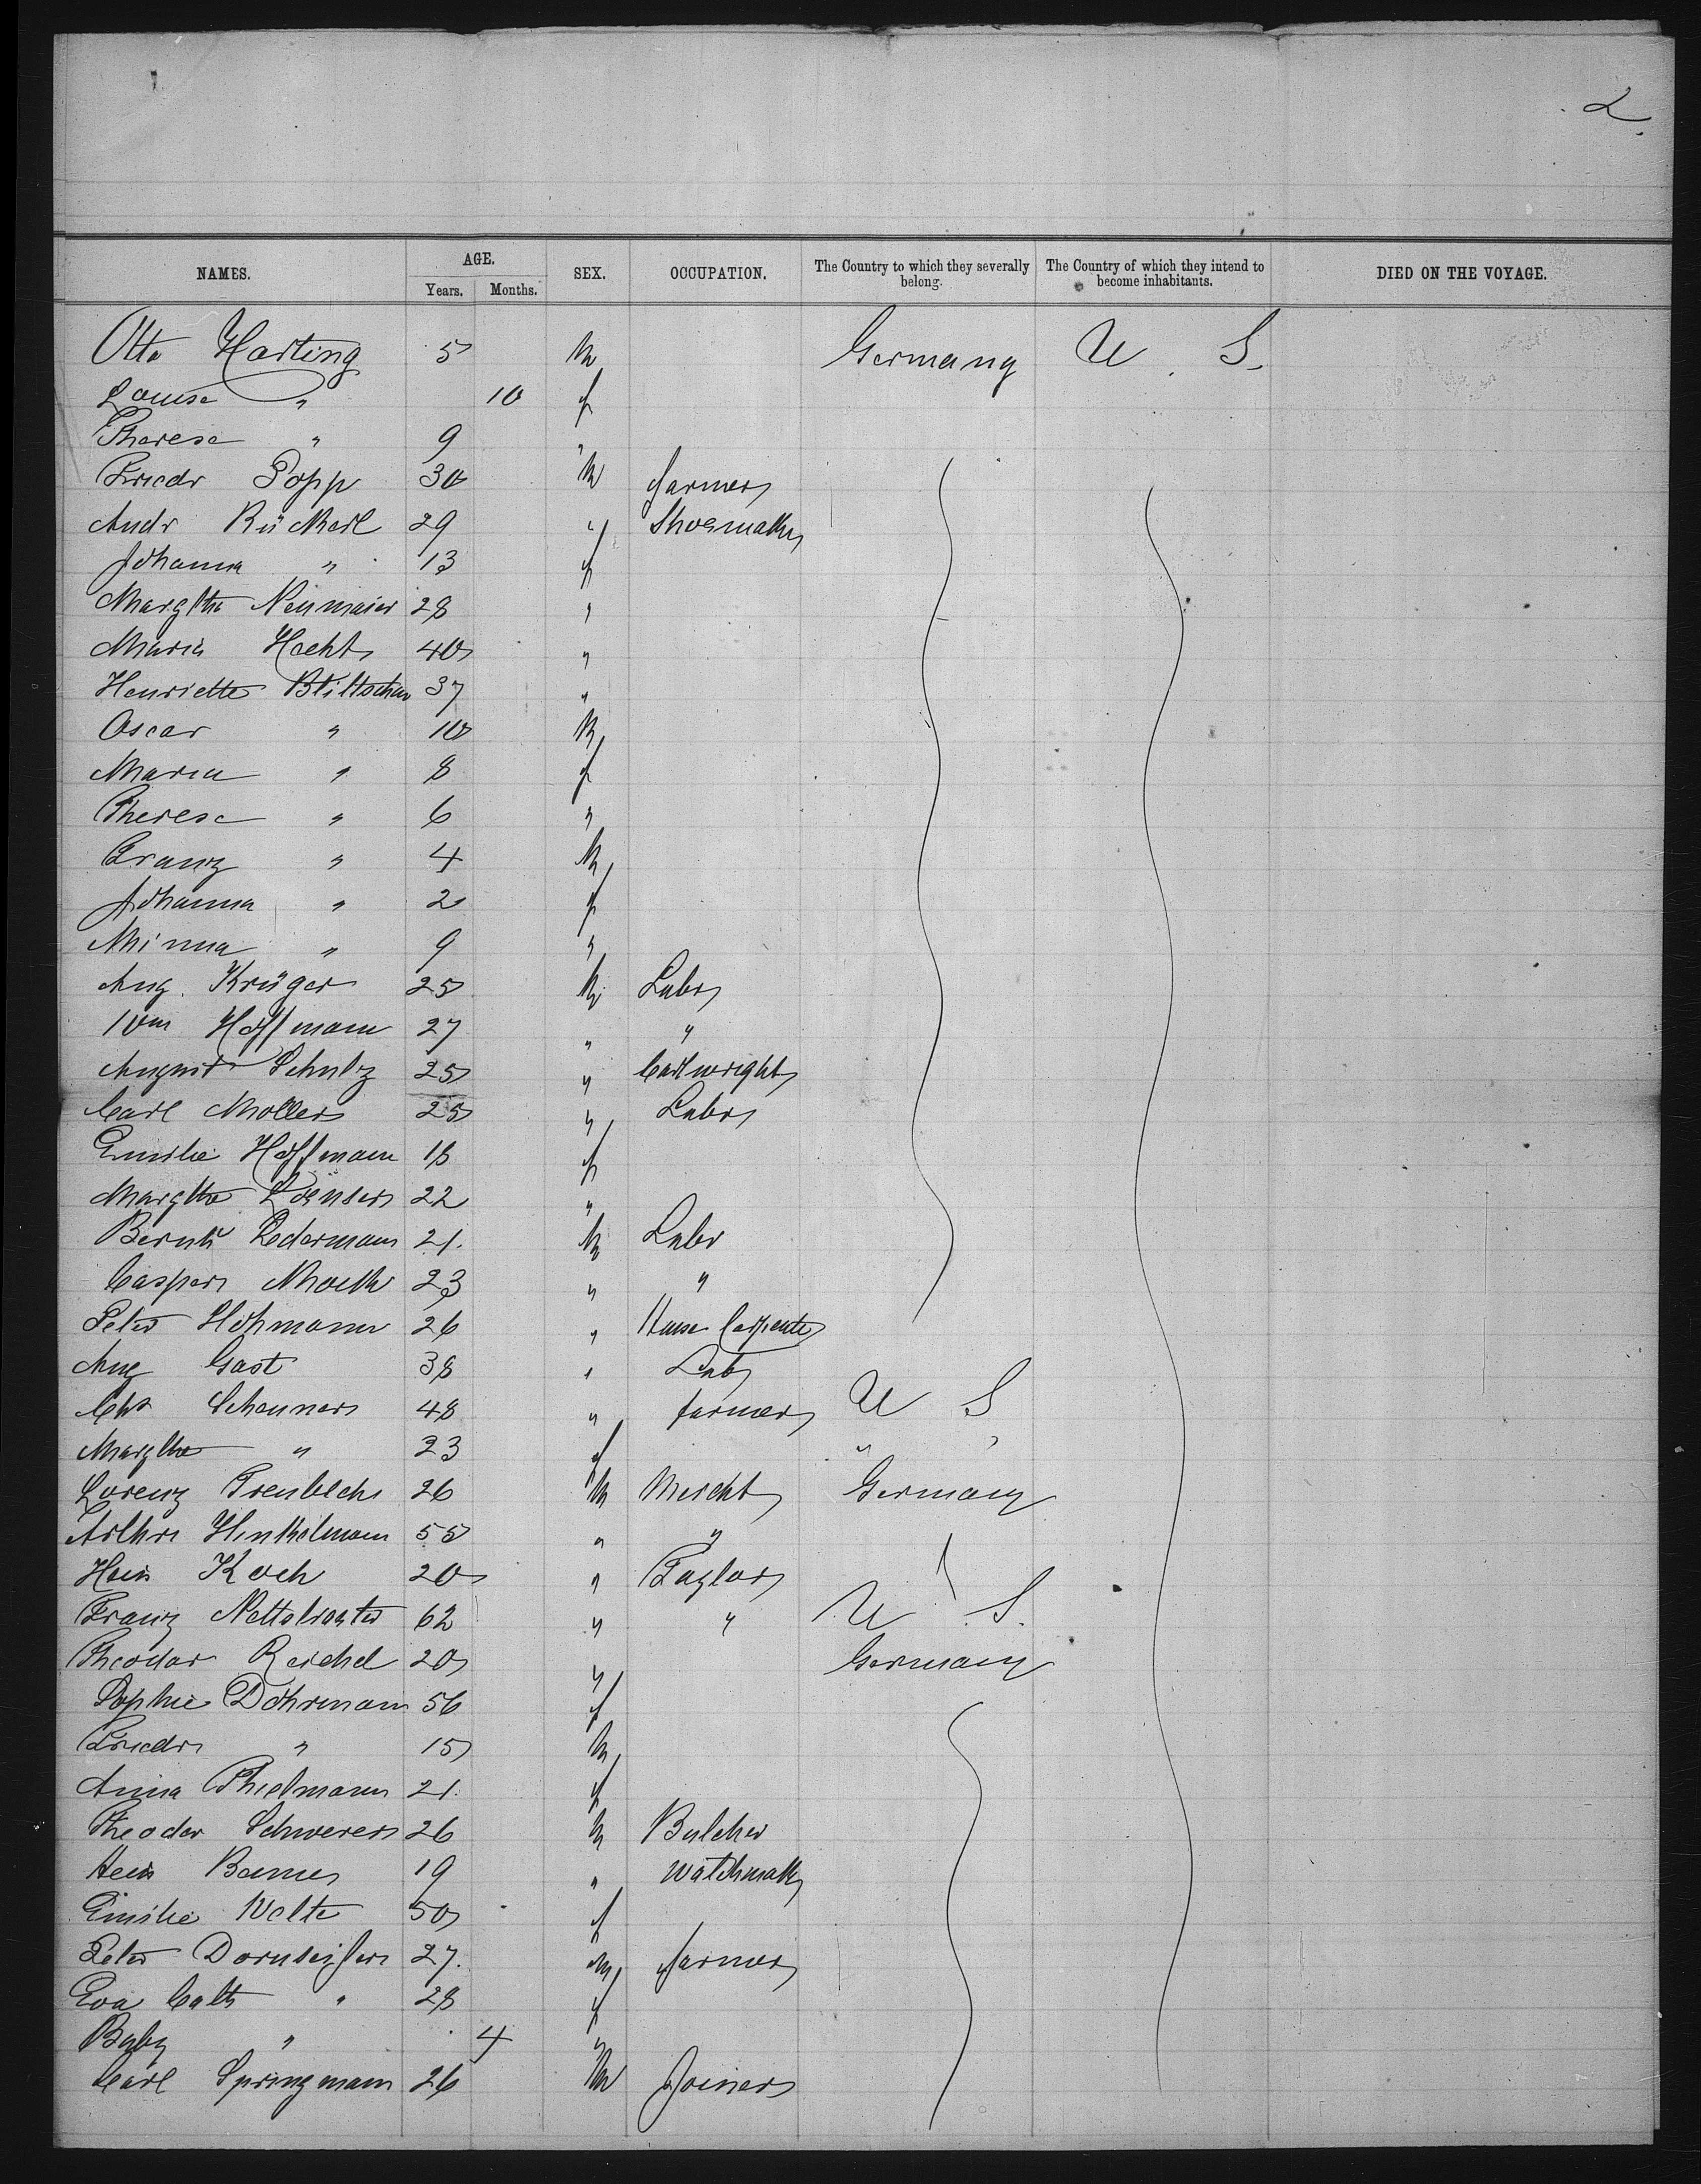 2.
NAMES. AGE. SEX. OCCUPATION. The Country to which they severally belong. The Country of which they intend to become inhabitants. DIED ON THE VOYAGE.
Years. Months.
Otto Harting 5 M Germany U. S.
Louise " 10 f
Therese " 9 "
Friedr Popp 30 M farmer
Andr Rückerl 29 " Shoemaker
Johanna " 13 f
Margthe Neumaier 28 "
Maria Hecht 40 "
Henriette 37 "
Oscar " 10 M
Maria " 8 f
Therese " 6 "
Franz " 4 M
Johanna " 2 f
Minna " 9 "
Aug. Krüger 25 M Labr
Wm Hoffmann 27 " "
August Schulz 25 " Cartwright
Carl Moller 25 " Labr
Emilie Hoffmann 18 f
Margthe 22 "
Bernh Ledermann 21. M Labr
Caspar 23 " "
Peter Hohmann 26 " House Carpenter
Aug Gast 38 " Labr
Chr 48 " farmer U S
Margthe " 23 f " "
Lorenz 26 M Mercht Germany
Hinkelmann 55 " "
Hein Koch 20 " Taylor
Franz 62 " " U S.
Theodor Reichel 20 " Germany
Sophie Dohrmann 56 f
Friedr " 15 M
Anna Thielmann 21. f
Theodor Schwerer 26 M Butcher
Hein 19 " Watchmak
Emilie Welte 50 f
Peter Dornseifer 27. m farmer
Eva Cath " 28 f
Baby " 4 "
Carl Springmann 26 M Joiner